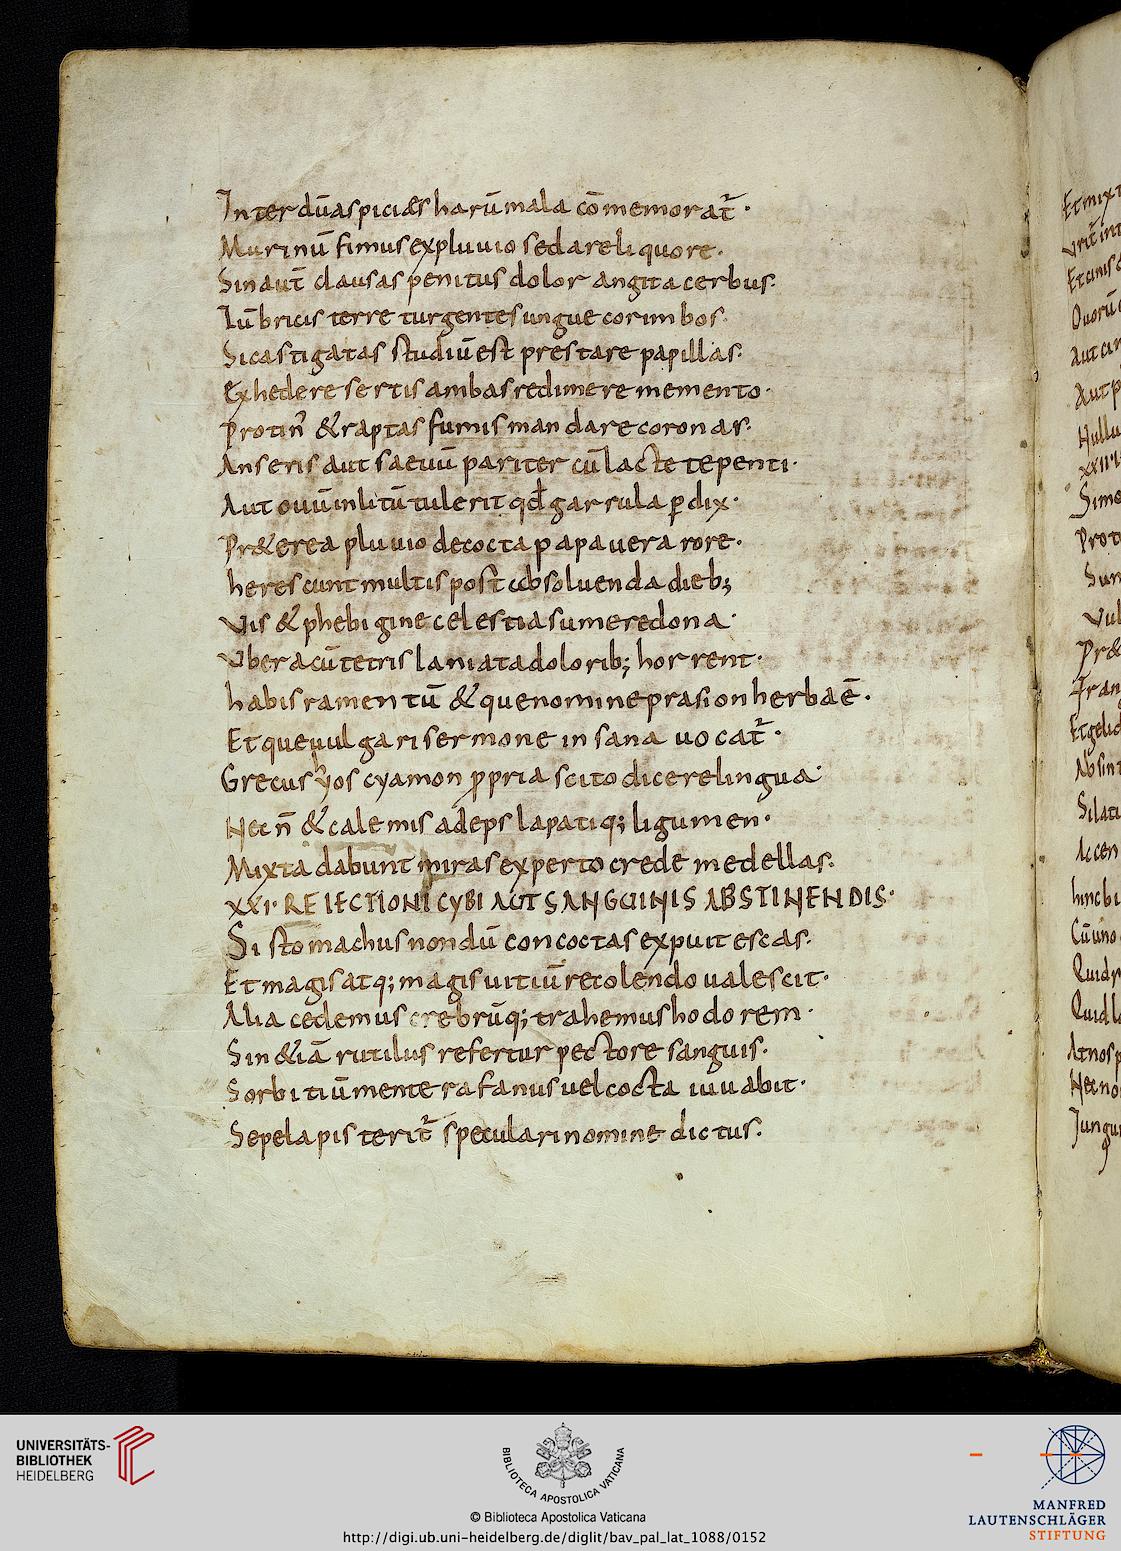 Interdū aspiciæs harū mala cōmemorat̄·
Murinū fimus expluuio sedare liquore·
Sin aut̄ clausas penitus dolor angit acerbus·
Lūbricis terre turgentes ungue corimbos·
Si castigatas studiū est prestare papillas·
Ex hedere sertis ambas redimere memento·
Protin̄ & raptas fumis mandare coronas·
Anseris aut saeuū pariter cū lacte tepenti·
Aut ouū inlitū tulerit qđ garrula ꝑdix·
Pr&erea pluuio decocta papauera rore·
herescunt multis post absoluenda dieb;
Vis & phebigine celestia sumere dona·
Vbera cū tetris laniata dolorib; horrent·
habis ramentū & que nomine prasion herba ē·
Et que uulgari sermone insana uocat̄·
Grecus hyos cyamon ꝓpria scito dicere lingua·
Necn̄ & calemis adeps lapatiq; ligumen·
Mixta dabunt miras experto crede medellas·
XXI· REIECTIONI CYBI AUT SANGUINIS ABSTINENDIS·
Si stomachus nondū concoctas expuit escas·
Et magis atq; magis uitiū recolendo ualescit·
Alia cedemus crebrūq; trahemus hodorem·
Sin &iā rutilus refertur pectore sanguis·
Sorbitiūmente rafanus uel cocta iuuabit·
Sepe lapis terit̄ speculari nomine dictus·
UNIVERSITÄTS-
BIBLIOTHEK
HEIDELBERG
BIBLIOTECA APOSTOLICA VATICANA
© Biblioteca Apostolica Vaticana
http://digi.ub.uni-heidelberg.de/diglit/bav_pal_lat_1088/0152
MANFRED
LAUTENSCHLÄGER
STIFTUNG